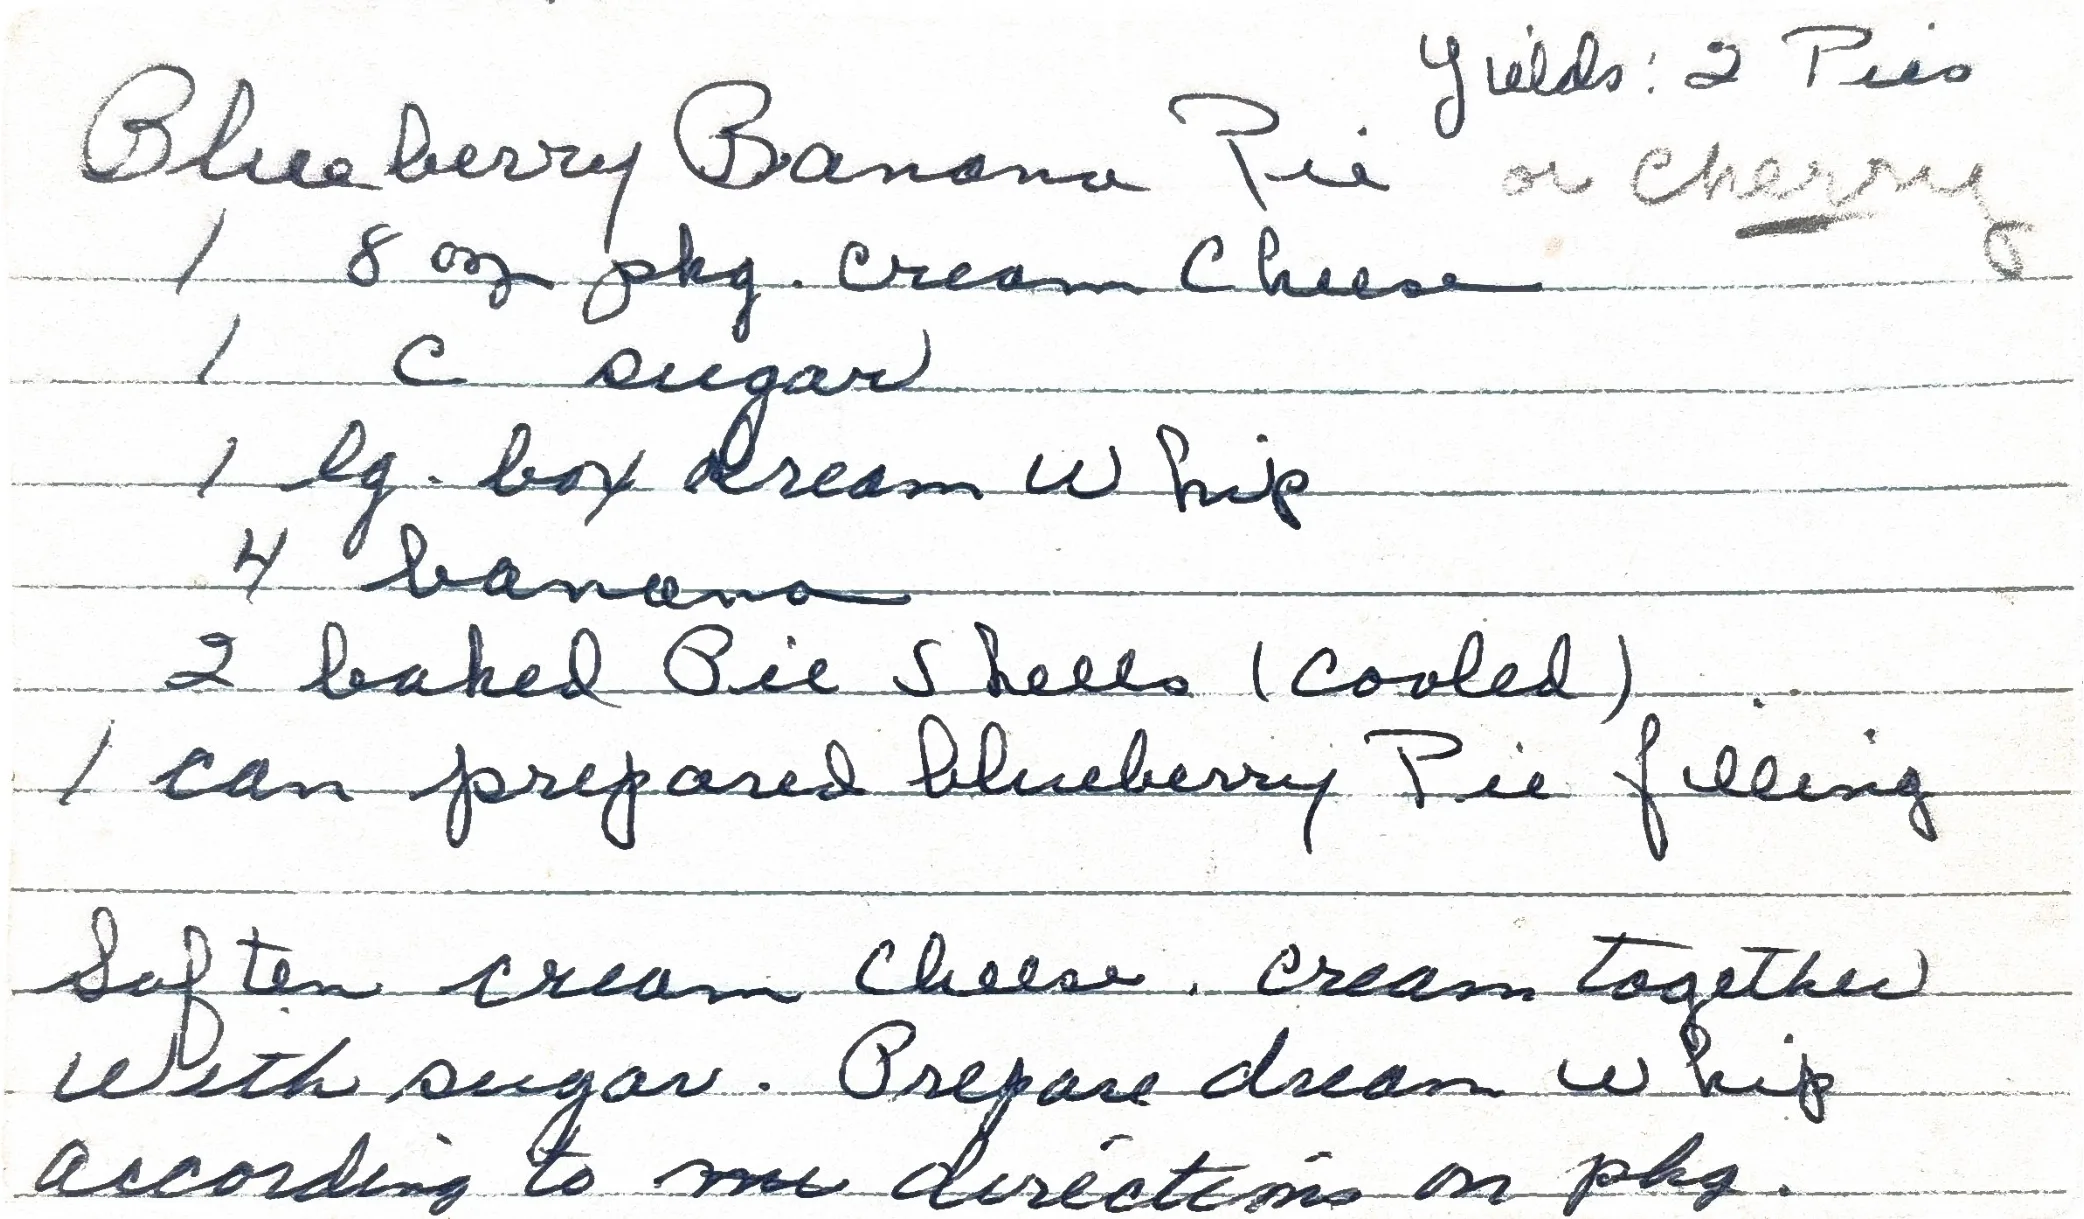 Yields: 2 Pies
Blueberry Banana Pie or cherry
1 8 oz pkg. cream cheese
1 C sugar
1 lg. box dream whip
4 banana
2 baked Pie Shells (cooled)
1 can prepared blueberry Pie filling
Soften cream cheese. cream together
with sugar. Prepare dream whip
according to directions on pkg.